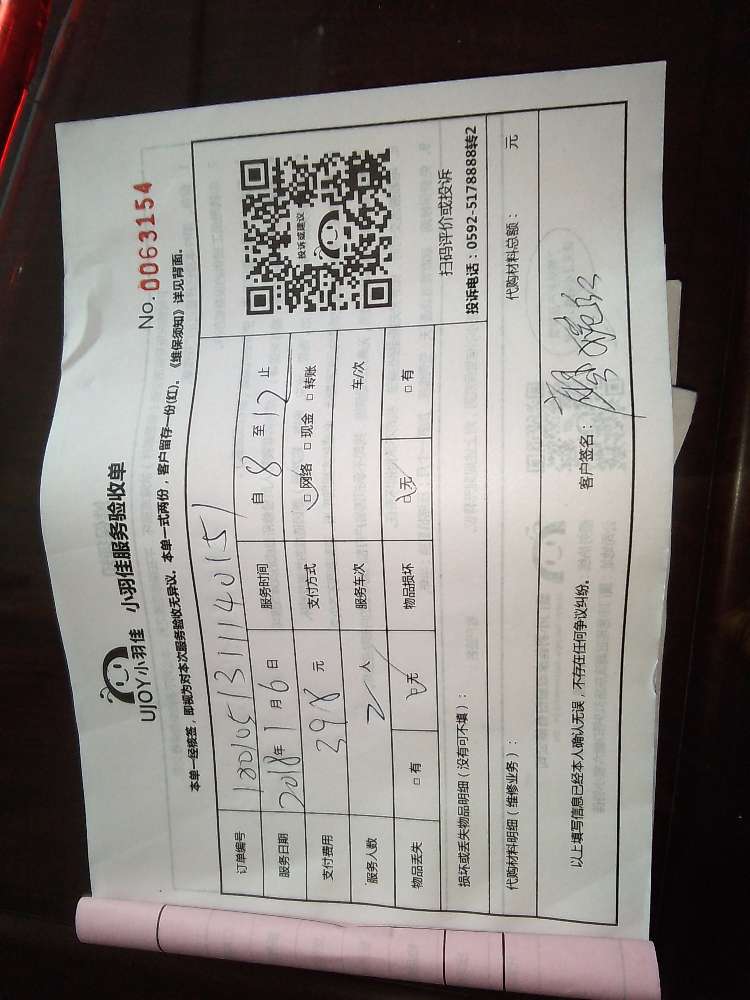 UJOY小羽佳 小羽佳服务验收单
No. 0063154
本单一经核签，即视为对本次服务验收无异议。本单一式两份，客户留存一份(红)。《维保须知》详见背面。
订单编号 18010513111140151
服务日期 2018年1月6日 服务时间 自8至12止
支付费用 398元 支付方式 ☑网络 □现金 □转账
服务人数 2人 服务车次 车/次
物品丢失 □有 ☑无 物品损坏 ☑无 □有
投诉或建议
扫码评价或投诉
投诉电话：0592-5178888转2
损坏或丢失物品明细（没有可不填）：
代购材料明细（维修业务）： 代购材料总额： 元
以上填写信息已经本人确认无误，不存在任何争议纠纷。 客户签名：